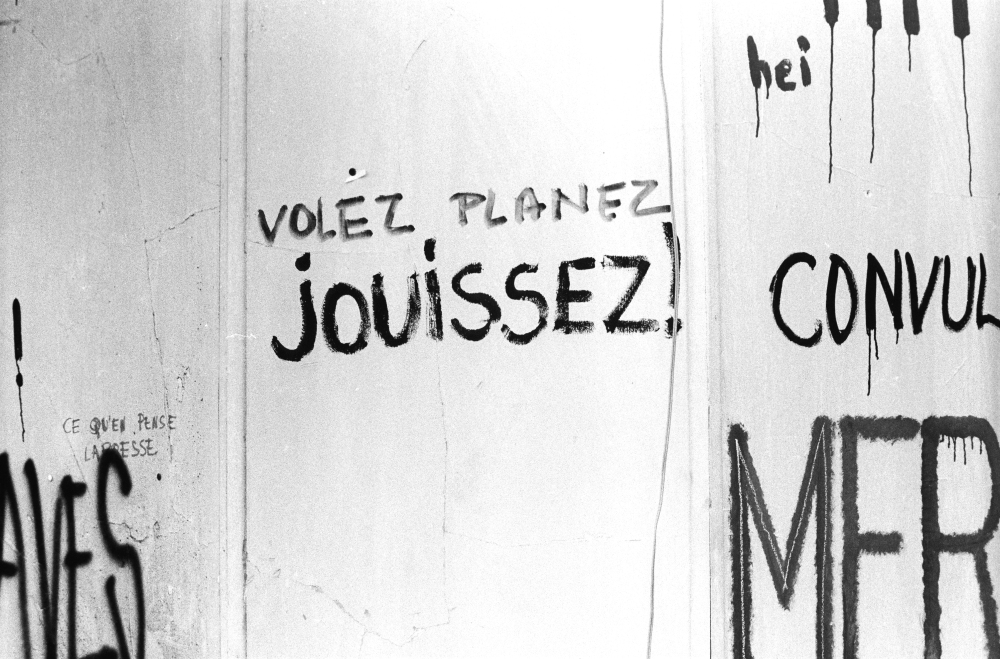 !
CE QU'EN PENSE
LA PRESSE
AVES
VOLEZ PLANEZ
jOUiSSEZ!
hei
CONVUL
MER